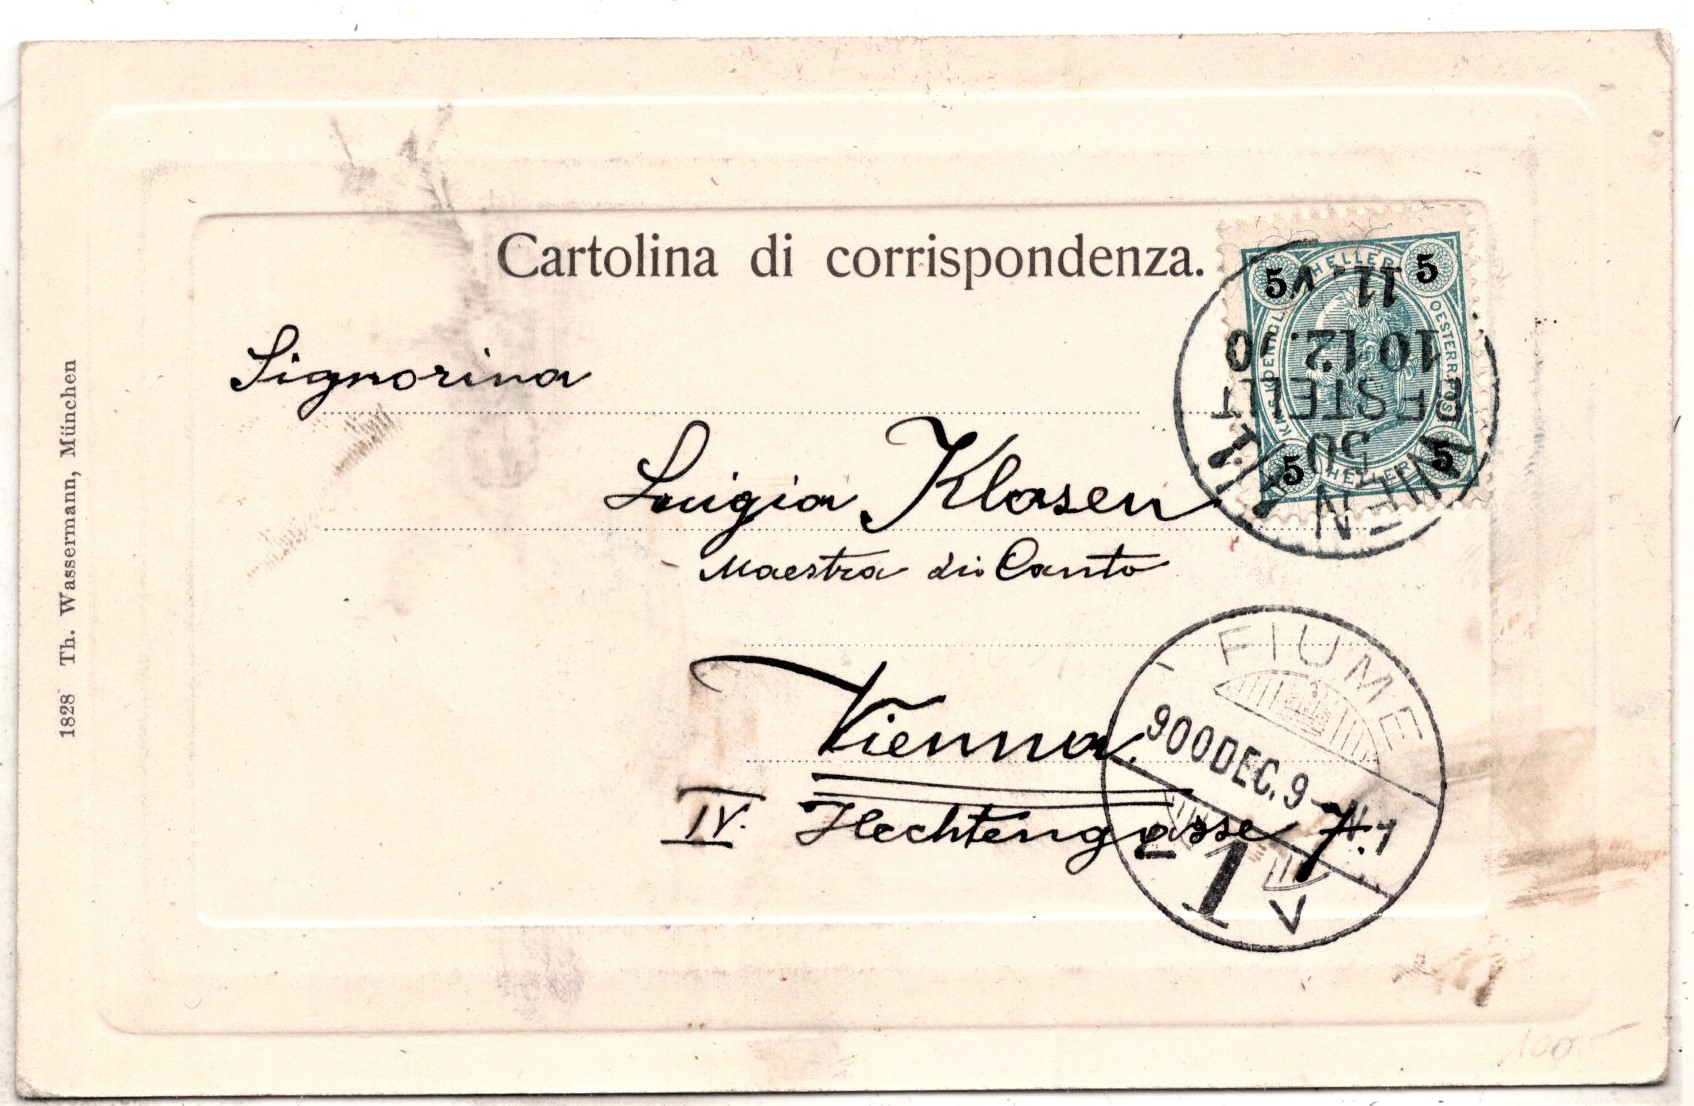 Cartolina di corrispondenza.
Signorina
Luigia Klasen
Maestra di Canto
Vienna.
IV. Hechtengasse 7.
1828 Th. Wassermann, München
5 HELLER 5
5 HELLER 5
WIEN
50
BESTELLT
10 12. 0
11. V
FIUME
900 DEC. 9
1